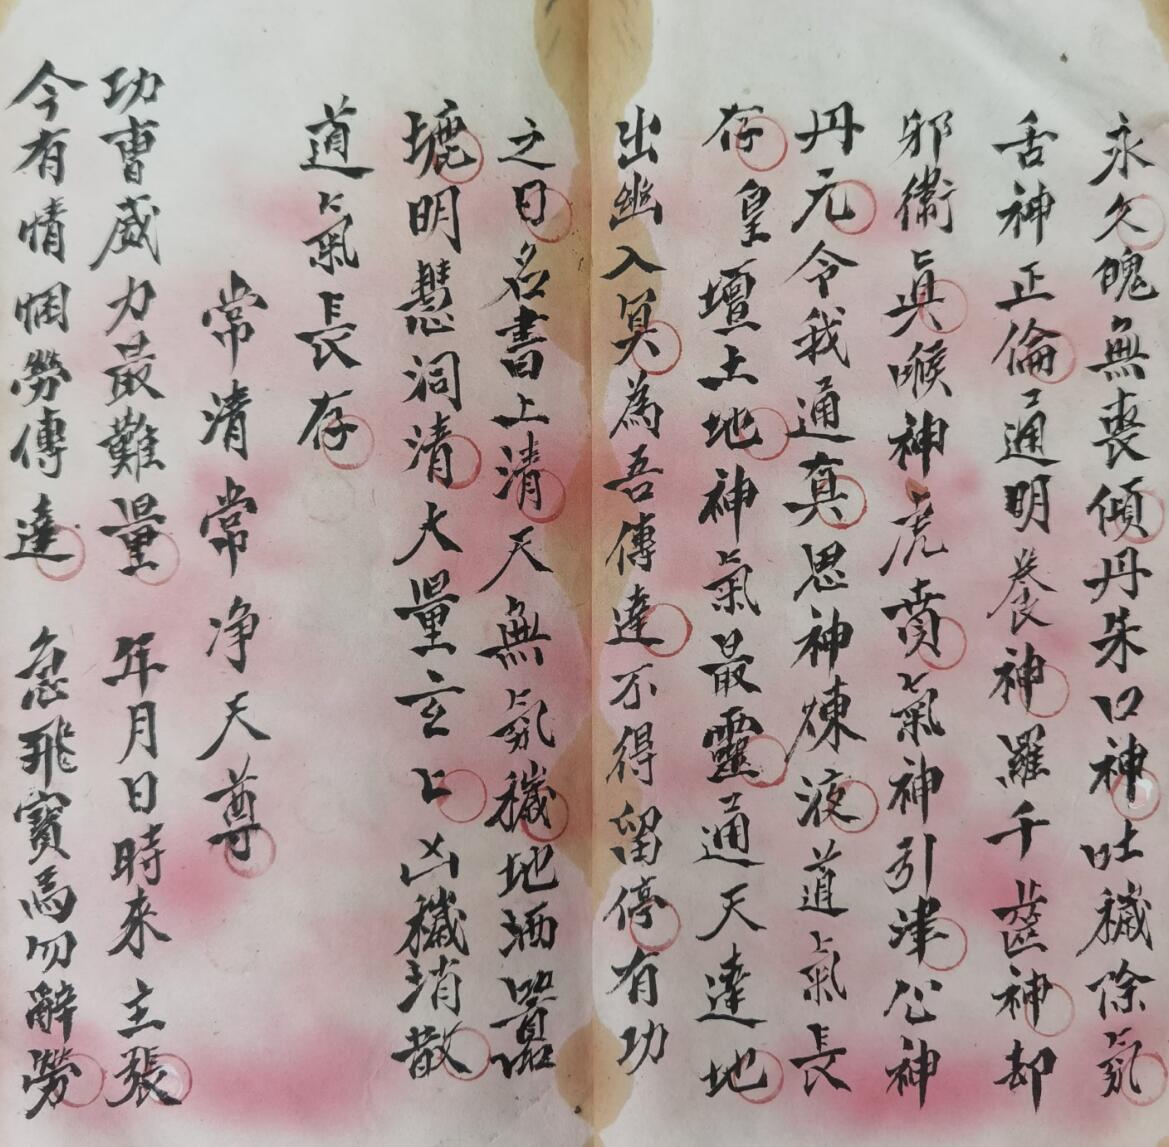 永久魄無喪傾丹朱口神吐穢除氛
舌神正倫通明養神羅千齒神却
邪衛眞喉神虎賁氣神引津心神
丹元令我通真思神煉液道氣長
存 皇壇土地神氣最靈通天達地
出幽入冥為吾傳達不得留停有功
之日名書上清天無氛穢地洒囂
塘明慧洞清大量玄上凶穢消散
道氣長存
常清常净天尊
功曹威力最難量 年月日時來主張
今有情悃勞傳達 急飛寶馬勿辭勞